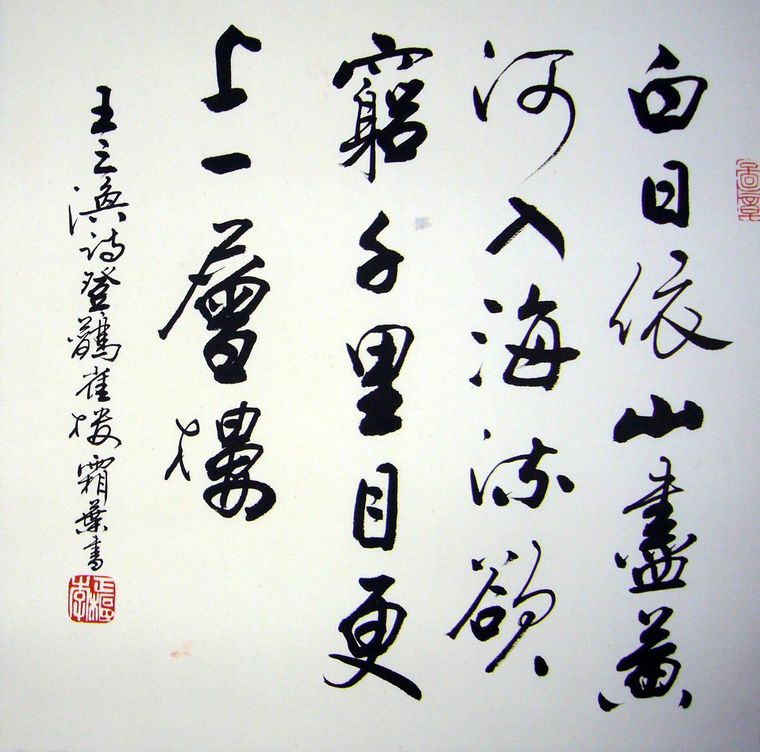 白日依山盡黃
河入海流欲
窮千里目更
上一層樓
王之渙詩登鸛雀樓霜葉書